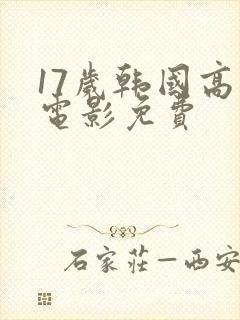 17歲韩國高
電影免費
石家莊—西安